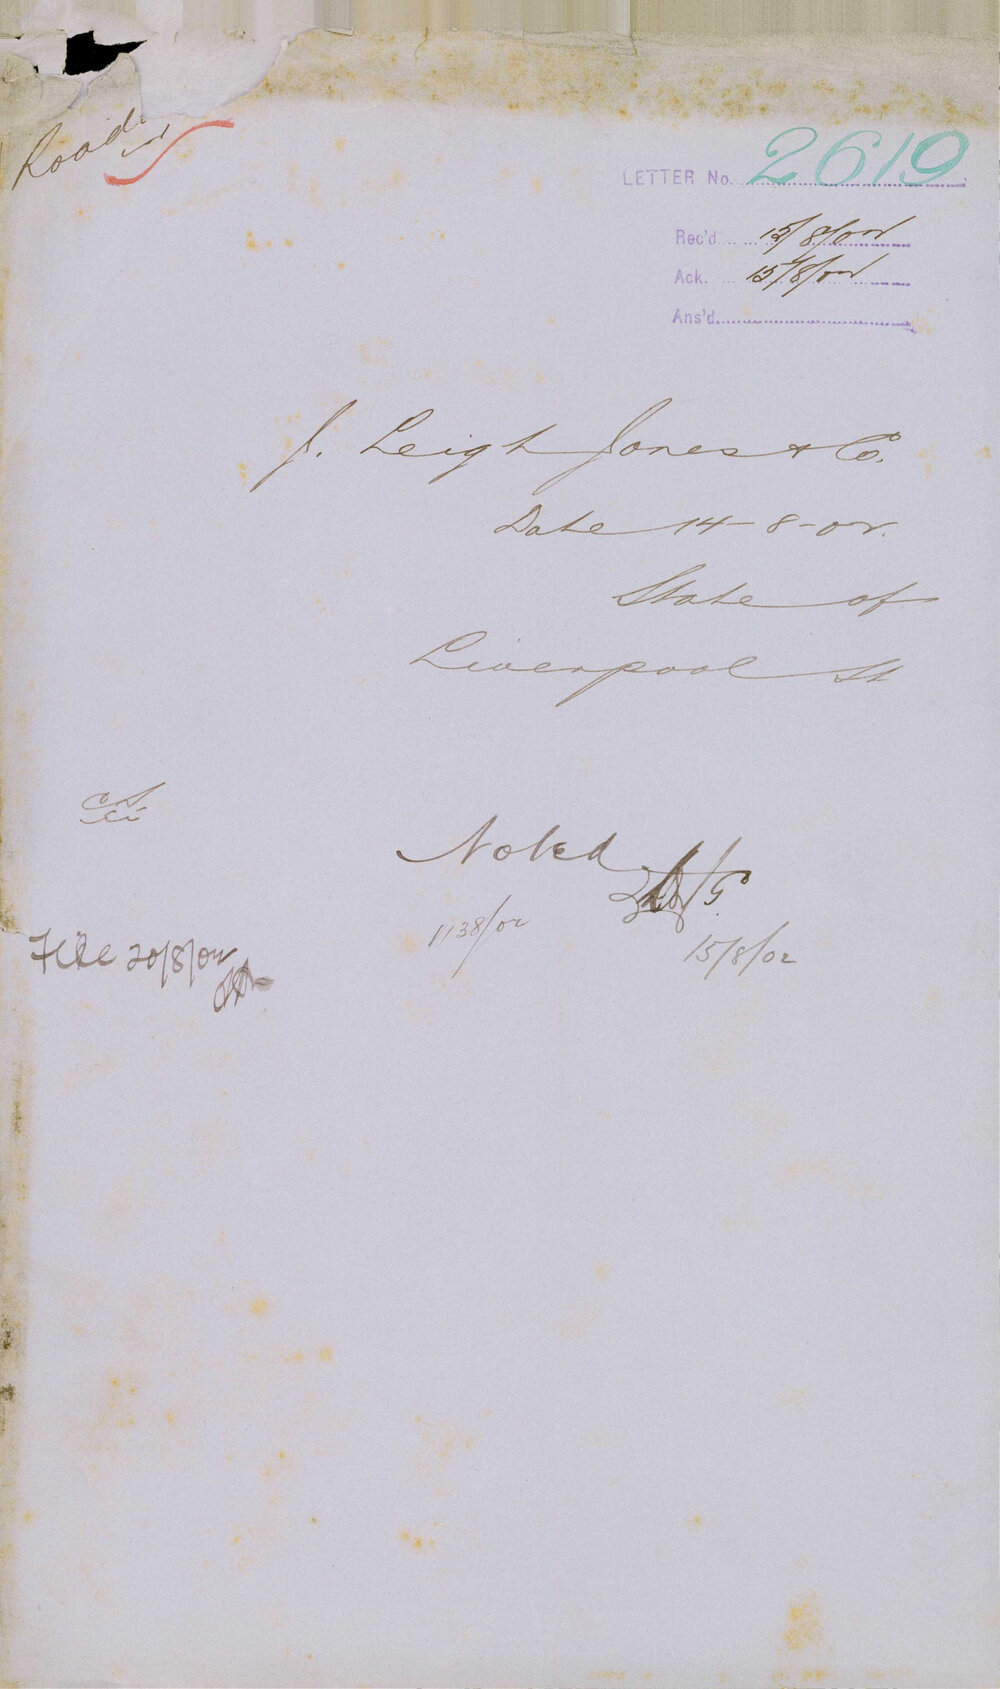 Roads
LETTER No. 2619
Rec'd 15/8/02
Ack. 15/8/02
Ans'd
J. Leigh Jones & Co.
Date 14-8-02.
State of
Liverpool St
Noted
1138/02
15/8/02
File 20/8/02